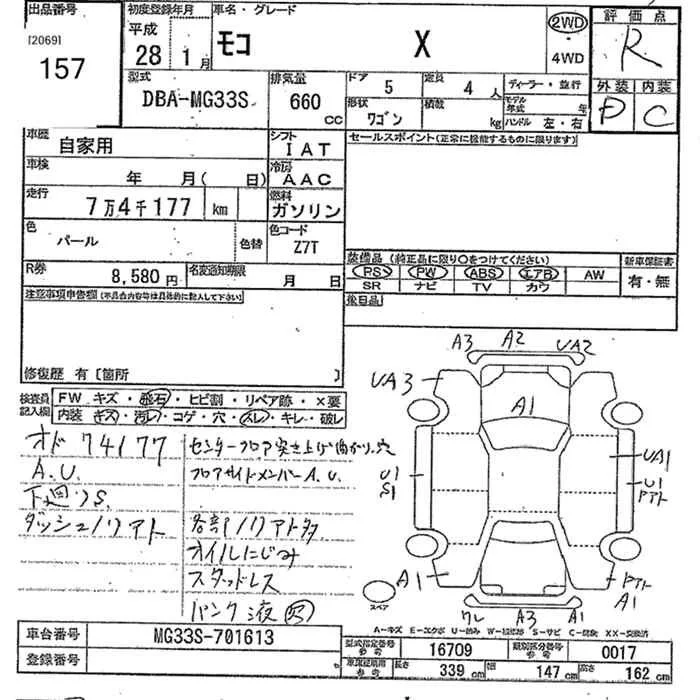 出品番号
[2069]
157
初度登録年月
平成
28 1月
車名・グレード
モコ X
2WD
・
4WD
評価点
R
外装 内装
D C
型式
DBA-MG33S
排気量
660
CC
ドア 5
定員 4人
ディーラー・並行
形状 ワゴン
積載 kg
モデル年式 年
ハンドル 左・右
車歴
自家用
シフト
IAT
セールスポイント(正常に機能するものに限ります)
車検
年 月( 日)
冷房
AAC
走行
7万4千177 km
燃料
ガソリン
色
パール
色替
色コード
Z7T
R券
8,580円
名変通知期限
月 日
装備品 (純正品に限り○をつけてください)
PS PW ABS エアB AW
SR ナビ TV カワ
新車保証書
有・無
後日品
注意事項申告欄(不具合内容等は具体的に記入して下さい)
修復歴 有〔箇所 〕
検査員記入欄
FW キズ・飛石・ヒビ割・リペア跡・×要
内装 キズ・汚レ・コゲ・穴・スレ・キレ・破レ
オド 74177
A.U.
下廻りS.
ダッシュノリアト
センターフロア突き上げ曲がり、穴
フロアサイドメンバーA.U.
各部ノリアト多
オイルにじみ
スタッドレス
パンク液(欠)
A3 A2 UA2
UA3
A1
U1
S1
UA1
U1
Pアト
A1
Pアト
A1
ワレ A3 A1
スペア
A-キズ E-エクボ U-凹み W-補修跡 S-サビ C-腐食 XX-交換済
車台番号
MG33S-701613
登録番号
型式指定番号
参考
16709
類別区分番号
参考
0017
車車証期用
参考
長さ 339 cm
幅 147 cm
高さ 162 cm